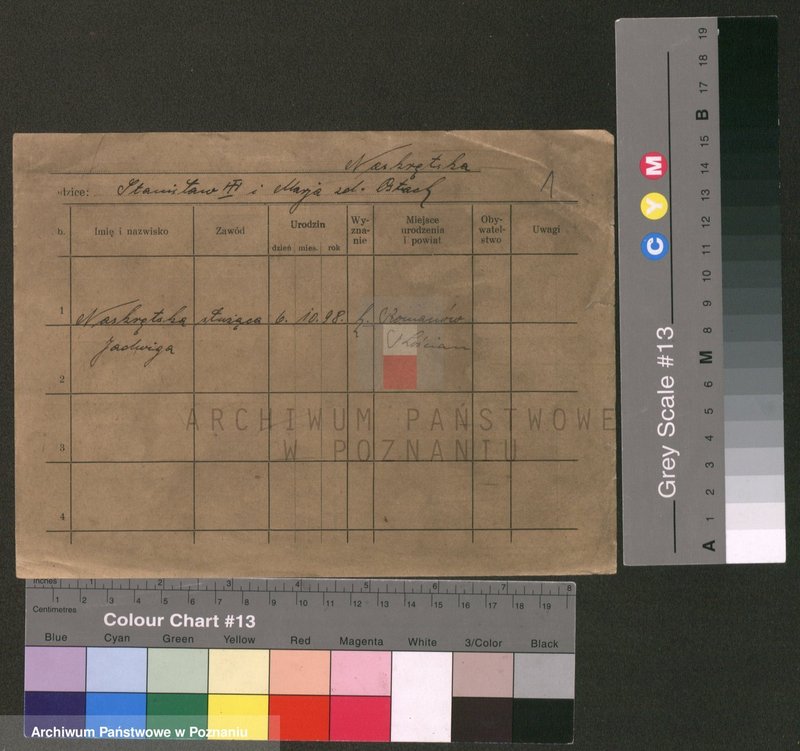 Naskrętska
dzice: Stanisław i Marja zd. Ostach
1
b. Imię i nazwisko Zawód Urodzin dzień mies. rok Wy-zna-nie Miejsce urodzenia i powiat Oby-watel-stwo Uwagi
1 Naskrętska służąca 6. 10. 98. k. Romanów
Jadwiga Kościan
2
3
4
ARCHIWUM PAŃSTWOWE
W POZNANIU
Inches 1 2 3 4 5 6 7 8
Centimetres 1 2 3 4 5 6 7 8 9 10 11 12 13 14 15 16 17 18 19
Colour Chart #13
Blue Cyan Green Yellow Red Magenta White 3/Color Black
Archiwum Państwowe w Poznaniu
Grey Scale #13
C Y M
A 1 2 3 4 5 6 M 8 9 10 11 12 13 14 15 B 17 18 19